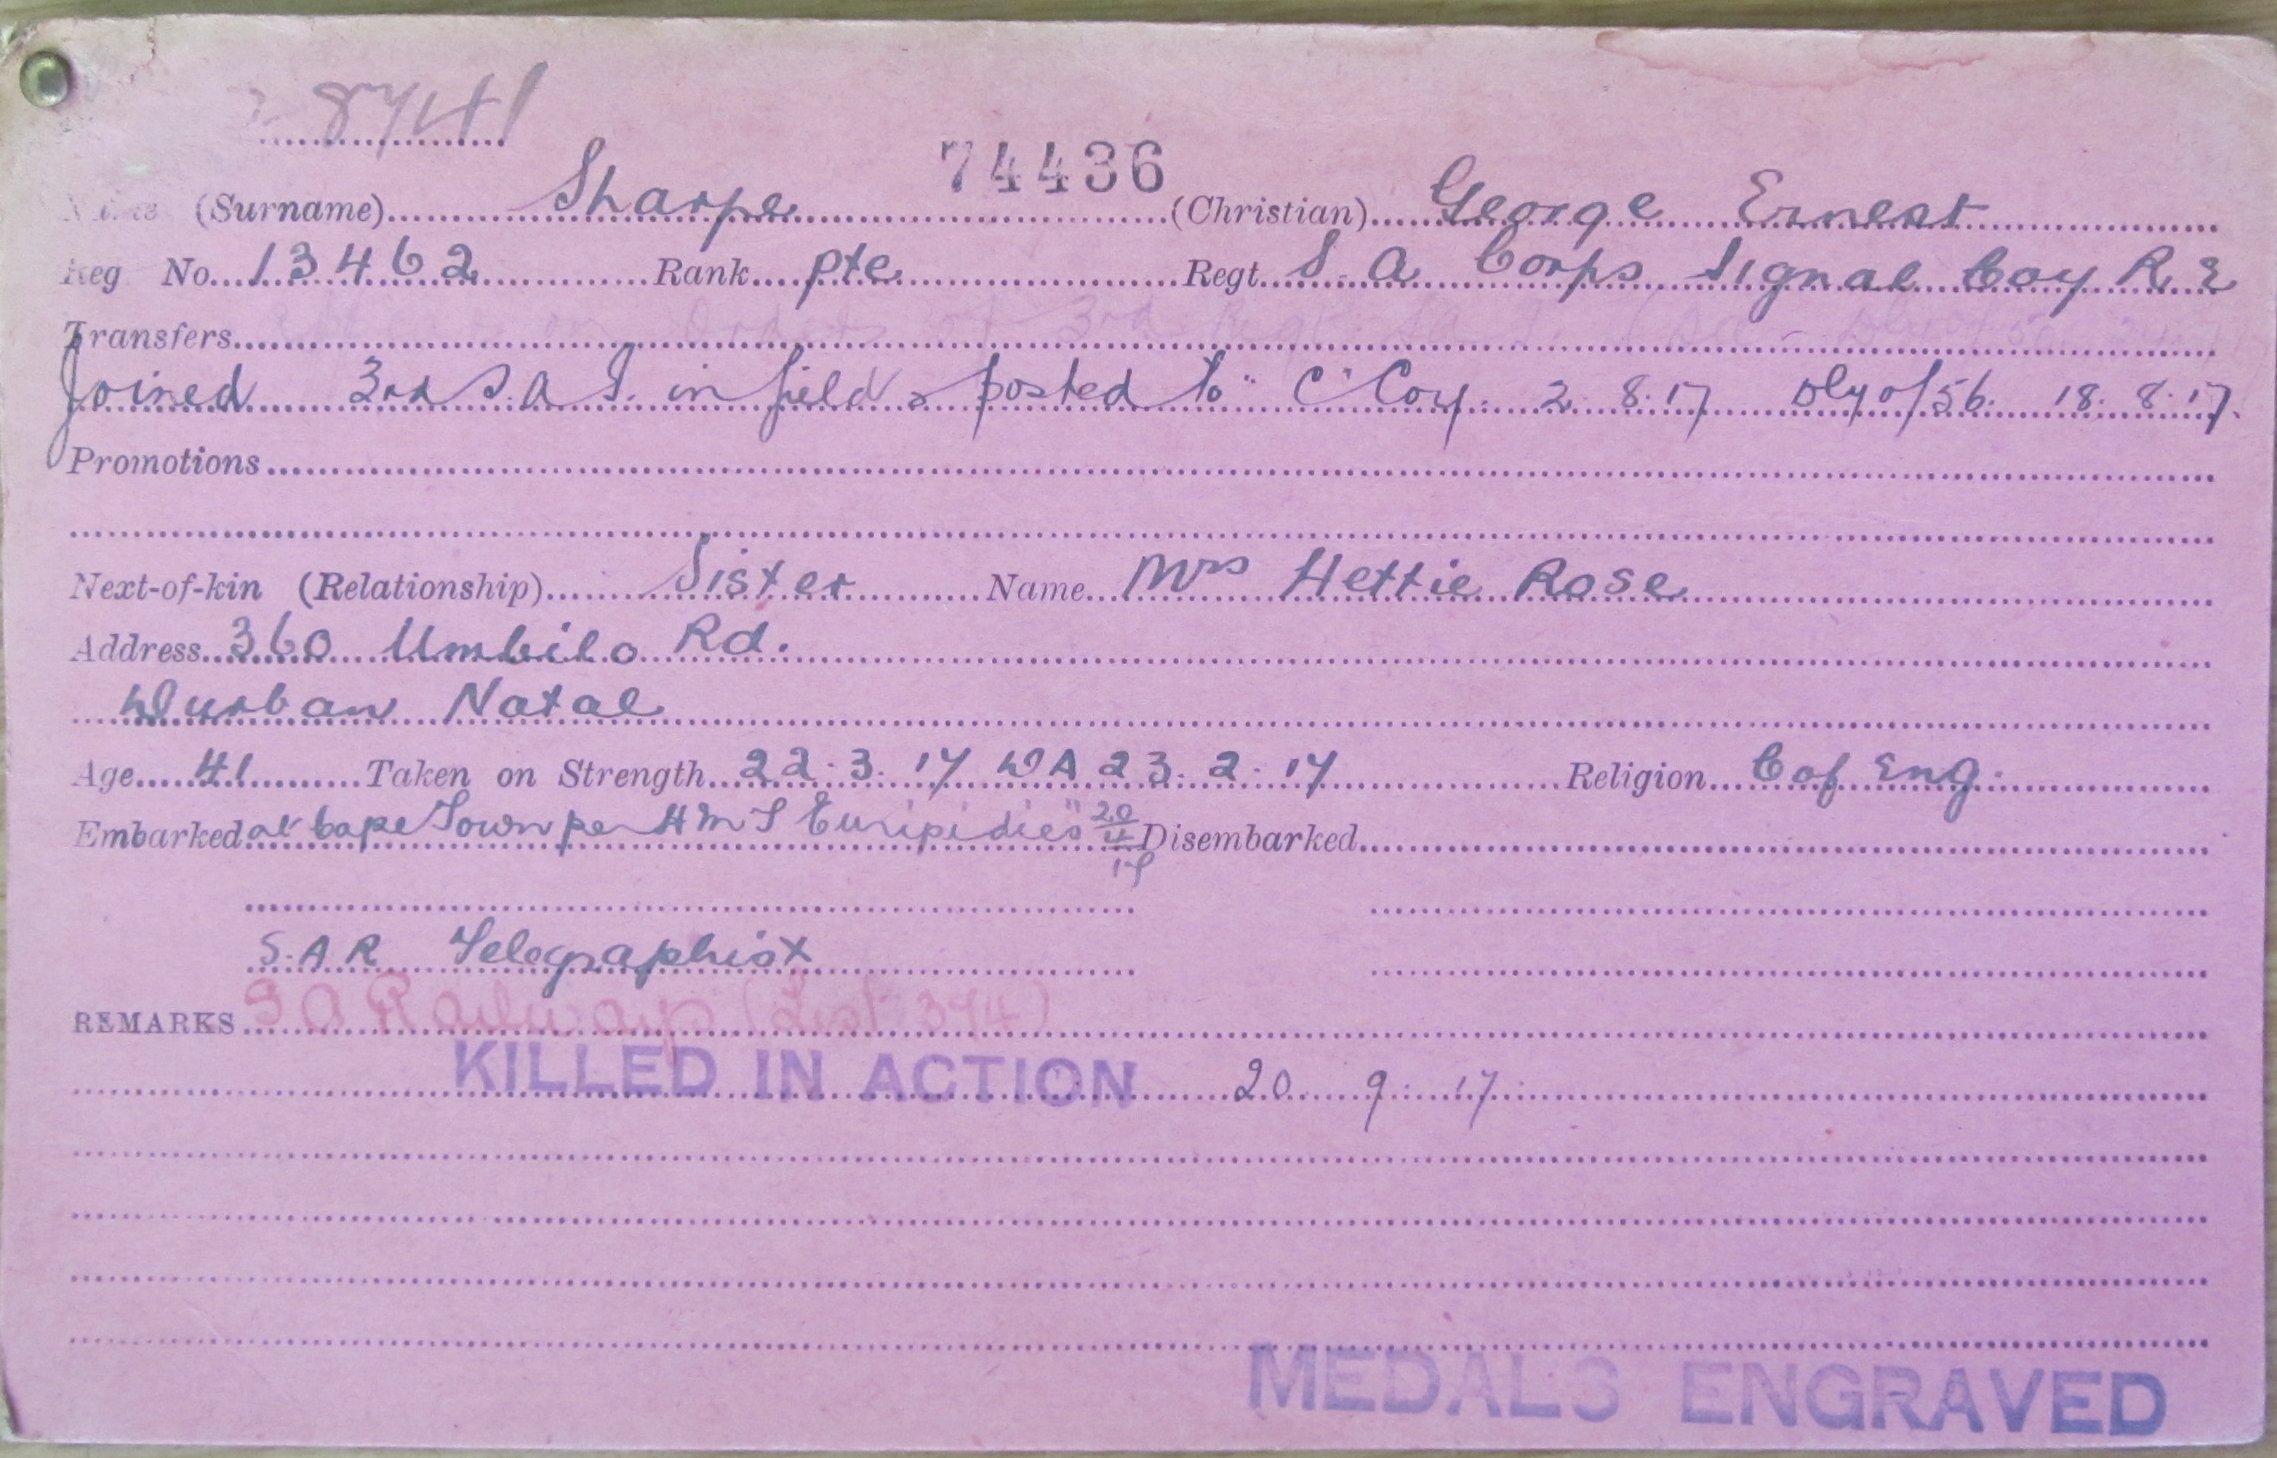 8741
74436
Name (Surname) Sharpe (Christian) George Ernest
Reg No. 13462 Rank Pte Regt. S.A Corps Signal Coy R.E
Transfers on Orders 3rd
Joined 3rd S.A.I. in field & posted to "C" Coy. 2.8.17 Dly o/56. 18.8.17.
Promotions
Next-of-kin (Relationship) Sister Name Mrs Hettie Rose
Address 360 Umbilo Rd.
Durban Natal
Age 41 Taken on Strength 22.3.17 WA 23.2.17 Religion C of Eng.
Embarked at Cape Town per HMS Euripidies" 20/4/17 Disembarked
S.A.R Telegraphist
REMARKS S A Railways (List 374)
KILLED IN ACTION 20.9.17
MEDALS ENGRAVED